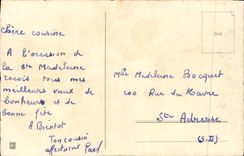 Chère cousine
A l'occasion de
la Ste Madeleine
reçois tous mes
meilleurs vœux de
bonheurs et de
bonne fête
A Bientôt
Ton cousin
affectueux Paul
Mlle Madeleine Bocquet
100 Rue du Havre
Ste Adresse
(S.I)